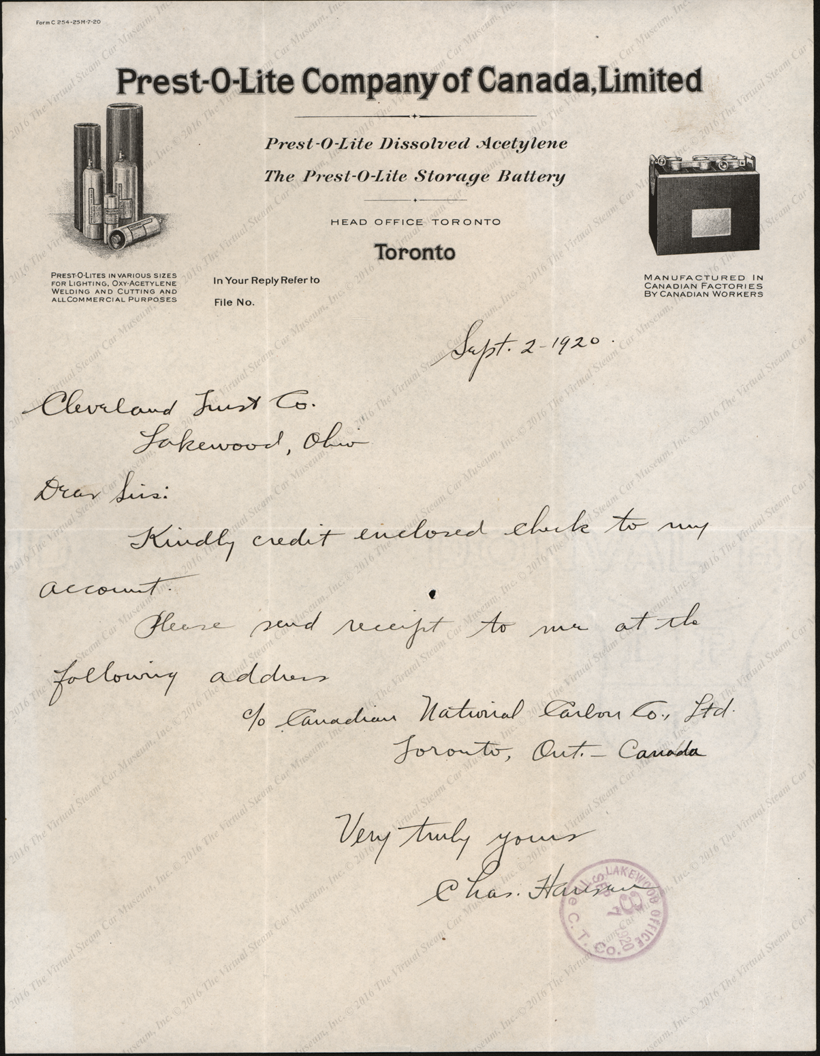 Form C 254-25M-7-20
Prest-O-Lite Company of Canada, Limited
Prest-O-Lite Dissolved Acetylene
The Prest-O-Lite Storage Battery
HEAD OFFICE TORONTO
Toronto
PREST-O-LITES IN VARIOUS SIZES
FOR LIGHTING, OXY-ACETYLENE
WELDING AND CUTTING AND
ALL COMMERCIAL PURPOSES
In Your Reply Refer to
File No.
MANUFACTURED IN
CANADIAN FACTORIES
BY CANADIAN WORKERS
Sept. 2-1920.
Cleveland Trust Co.
Lakewood, Ohio
Dear Sirs:
Kindly credit enclosed check to my
account.
Please send receipt to me at the
following address
c/o Canadian National Carbon Co., Ltd.
Toronto, Ont. - Canada
Very truly yours
Chas. Hansen
LAKEWOOD OFFICE
SEP 7 1920
The C. T. Co.
© 2016 The Virtual Steam Car Museum, Inc.